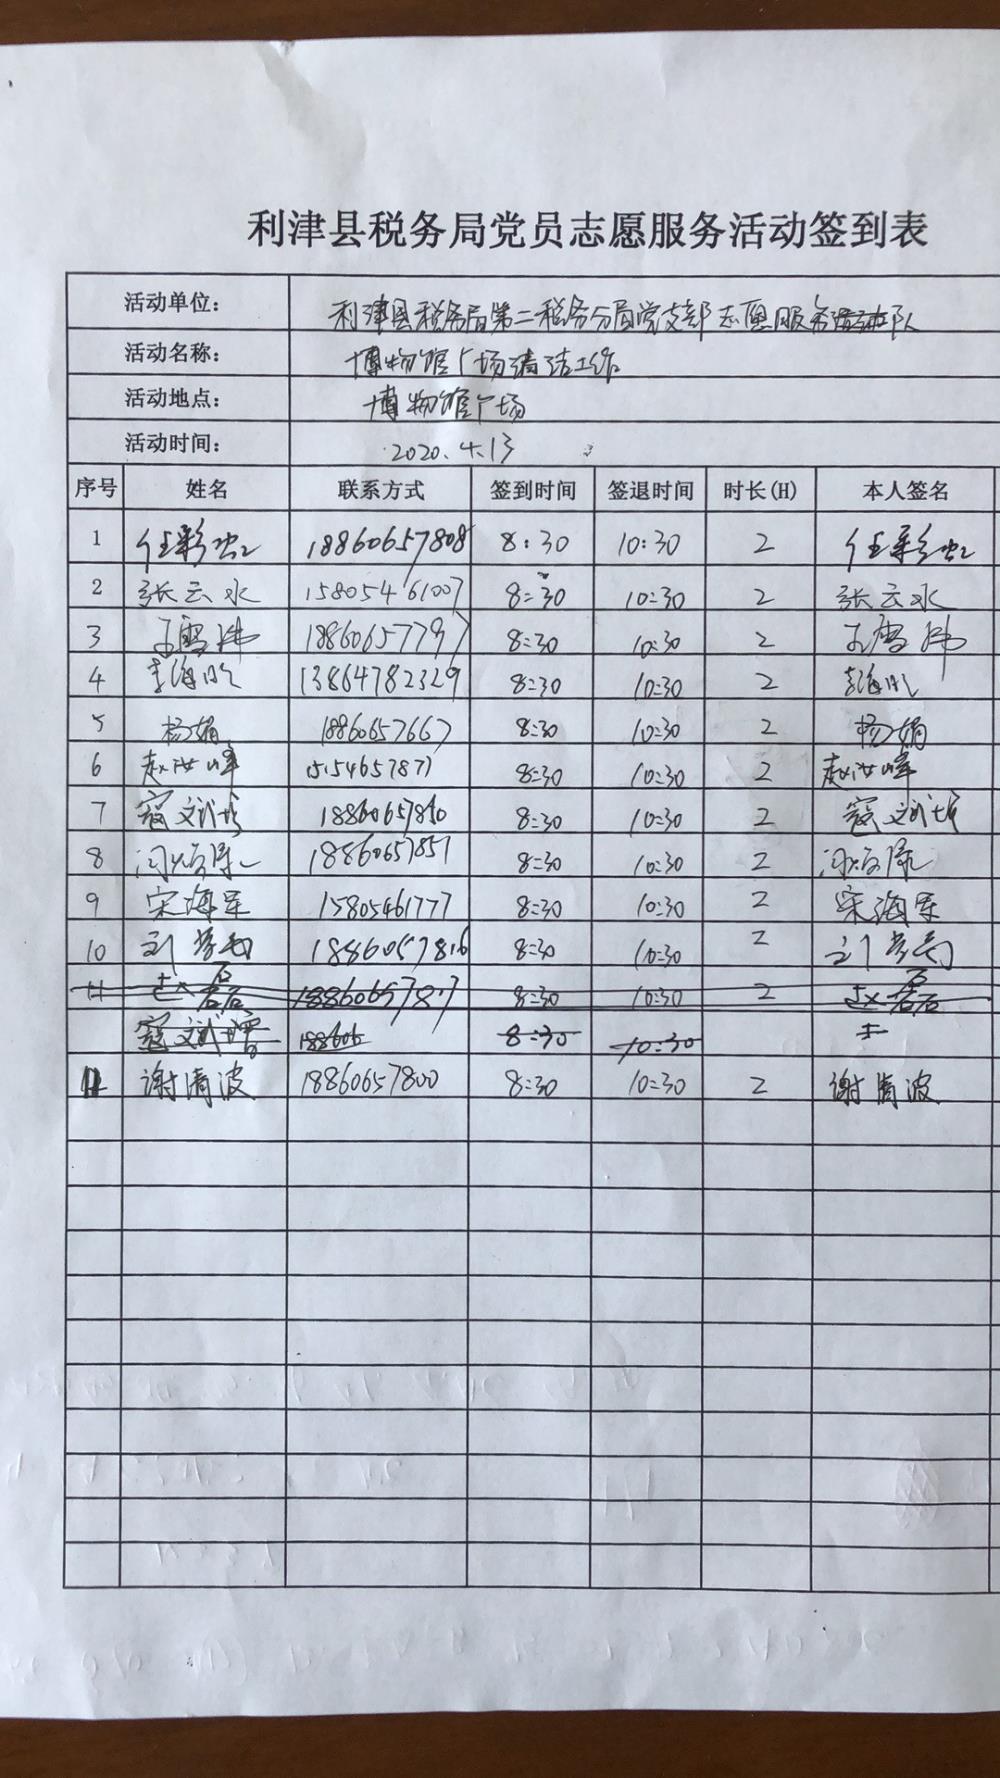 利津县税务局党员志愿服务活动签到表
活动单位： 利津县税务局第二税务分局党支部志愿服务活动队
活动名称： 博物馆广场清洁工作
活动地点： 博物馆广场
活动时间： 2020.4.13
序号 姓名 联系方式 签到时间 签退时间 时长(H) 本人签名
1 任彩虹 18860657808 8:30 10:30 2 任彩虹
2 张云水 15805461007 8:30 10:30 2 张云水
3 王雪梅 18860657797 8:30 10:30 2 王雪梅
4 李海 13864782329 8:30 10:30 2 李海
5 杨娟 18860657667 8:30 10:30 2 杨娟
6 赵汝峰 8:30 10:30 2 赵汝峰
7 寇文斌 18860657810 8:30 10:30 2 寇文斌
8 18860657857 8:30 10:30 2
9 宋海军 15805461777 8:30 10:30 2 宋海军
10 刘 18860057816 8:30 10:30 2 刘
11 赵磊 18860657817 8:30 10:30 2 赵磊
寇文斌 188606 8:30 10:30
11 谢清波 18860657800 8:30 10:30 2 谢清波